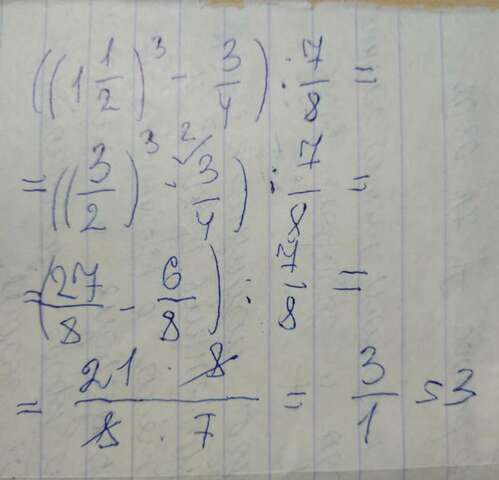 ((1 1/2)³ - 3/4) : 7/8 =
= ((3/2)³ - ²⁄3/4) : 7/8 =
= (27/8 - 6/8) : 7/8 =
= 21 · 8 / 8 · 7 = 3/1 = 3